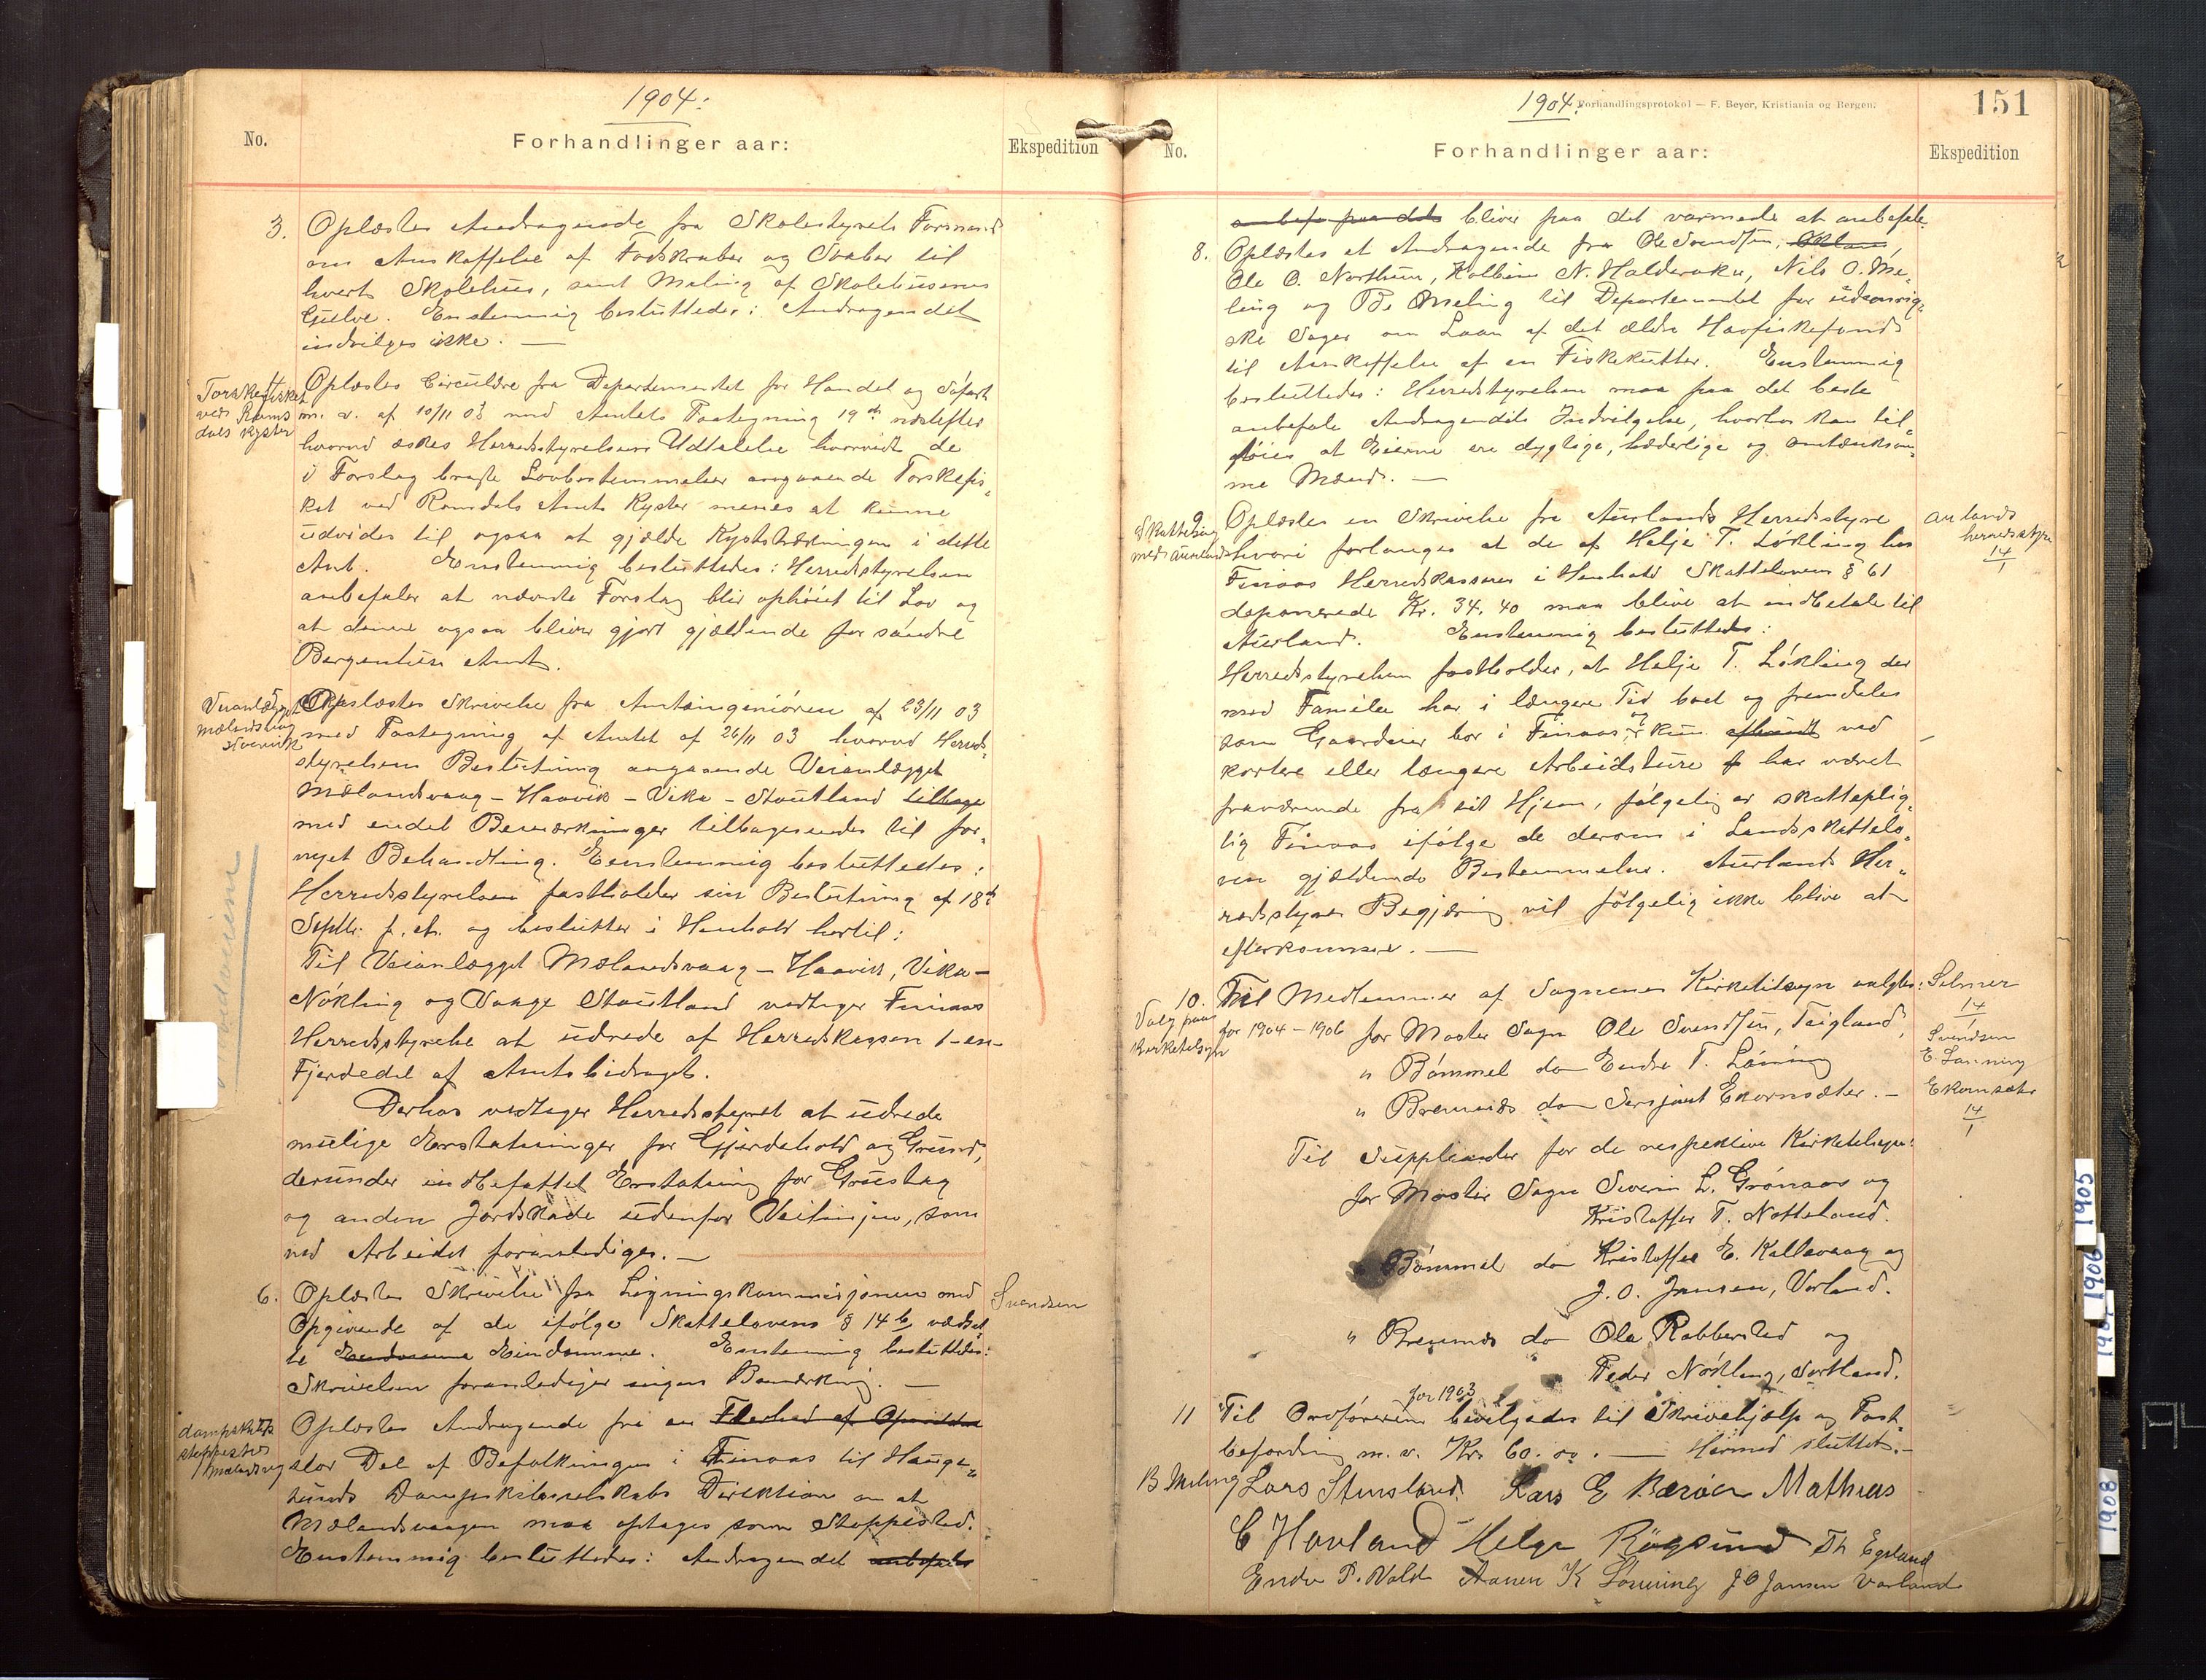 1904:
No.
Forhandlinger aar:
Ekspedition
3. Oplæstes Andragende fra Skolestyrets Formand
om Anskaffelse af Fodskraber og Svaber til
hvert Skolehus, samt Maling af Skolehusenes
Gulve. Enstemmig besluttedes: Andragendet
indvilges ikke. —
Torskefisket
ved Roms
dals kyster
4 Oplæstes Circulære fra Departementet for Handel og Søfart
m. v. af 10/11 03 med Amtets Paategning 19de næstefter
hvorved æskes Herredsstyrelsens Udtalelse hvorvidt de
i Forslag bragte Lovbestemmelser angaaende Torskefis-
ket ved Romsdals Amts Kyster menes at kunne
udvides til ogsaa at gjælde Kyststrækningen i dette
Amt. Enstemmig besluttedes: Herredsstyrelsen
anbefaler at nævnte Forslag blir ophøiet til Lov og
at denne ogsaa bliver gjort gjældende for søndre
Bergenhus Amt.
Veianlægget
Mælandsvaag
Haavik
5 Oplæstes Skrivelse fra Amtsingeniøren af 23/11 03
med Paategning af Amtet af 26/11 03 hvorved Herreds-
styrelsens Beslutning angaaende Veianlægget
Mælandsvaag – Haavik – Vika – Stoutland tilbage
med endel Bemærkninger tilbagesendes til for-
nyet Behandling. Eenstemmig besluttedes:
Herredsstyrelsen fastholder sin Beslutning af 18de
Septbr. f. A. og beslutter i Henhold hertil:
Til Veianlægget Mælandsvaag – Haavik, Vika –
Nökling og Vaage Stoutland vedtager Finaas
Herredsstyrelse at udrede af Herredskassen 1-en-
Fjerdedel af Amtsbidraget.
Derhos vedtager Herredsstyret at udrede
mulige Erstatninger for Gjerdehold og Grund,
derunder indbefattet Erstatning for Grustag
og anden Jordskade udenfor Veilinjen, som
ved Arbeidet foranlediges. —
6. Oplæstes Skrivelse fra Ligningskommisjonen med
Svendsen
Opgivende af de ifølge Skattelovens § 14 b vedtat
te Eiendomme. Enstemmig besluttedes:
Skrivelsen foranlediger ingen Bemerkning. —
dampskibs
stoppested
i Mælandsvag
7 Oplæstes Andragende fra en Flerhed af Opsiddere
stor Del af Befolkningen i Finaas til Hauge-
sunds Dampskibsselskabs Direktion om at
Mælandsvaagen maa optages som Stoppested.
Enstemmig besluttedes: Andragendet anbefales
1904.
Forhandlingsprotokol — F. Beyer, Kristiania og Bergen.
151
No.
Forhandlinger aar:
Ekspedition
bliver paa det varmeste at anbefale.
8. Oplæstes et Andragende fra Ole Svendsen,
Ole O. Nortun, Kolbein N. Halderaker, Nils O. Mæ-
ling og B. Mæling til Departementet for udenrig-
ske Sager om Laan af det ældre Havfiskefond
til Anskaffelse af en Fiskekutter. Enstemmig
besluttedes: Herredsstyrelsen maa paa det beste
anbefale Andragendets Indvilgelse, hvorhos kan til-
føies at Eierne ere dygtige, hæderlige og omtænksom-
me Mænd. —
Skattesag
med Aurland
9 Oplæstes en Skrivelse fra Aurlands Herredsstyre
Aurlands
herredsstyre
14/1
hvori forlanges at de af Helje T. Løkling hos
Finaas Herredskasserer i Henhold Skattelovens § 61
deponerede Kr. 34.40 maa blive at indbetale til
Aurland. Enstemmig besluttedes:
Herredsstyrelsen fastholder, at Helje T. Løkling der
med Familie har i længere Tid boet og fremdeles
som Gaardeier bor i Finaas, og kun ved
kortere eller længere Arbeidsture har været
fraværende fra sit Hjem, følgelig er skatteplig-
tig Finaas ifølge de derom i Landsskattelo-
ven gjældende Bestemmelser. Aurlands Her-
redsstyres Begjæring vil følgelig ikke blive at
efterkomme. —
10.
Valg paa
kirketilsyn
Til Medlemmer af Sognenes Kirketilsyn valgtes:
for 1904 – 1906 for Moster Sogn Ole Svendsen, Teigland,
" Bömmel do Endre T. Løning
" Bremnes do Sersjant Ekornsæter. —
Selmer
14/1
Svendsen
E. Lønning
Ekornsæter
14/1
Til Suppleanter for de respektive Kirketilsyn:
for Moster Sogn Sverin L. Grønaas og
Kristoffer T. Notteland.
" Bömmel do Kristoffer E. Kallevaag og
J. O. Jansen, Vorland.
" Bremnes do Ola Robberstad og
Peder Nökling, Sortland.
11 Til Ordføreren for 1903 bevilgedes til Skrivehjælp og Post
befordring m. v. Kr. 60.00. — Hermed sluttet. —
B Mæling Lars Stursland Lars E Bærøen Mathias
C Hovland Helge Rögsund Th Egeland
Endre P. Vold Aanen K Lönning J O Jansen Vorland
1905
1906
1908